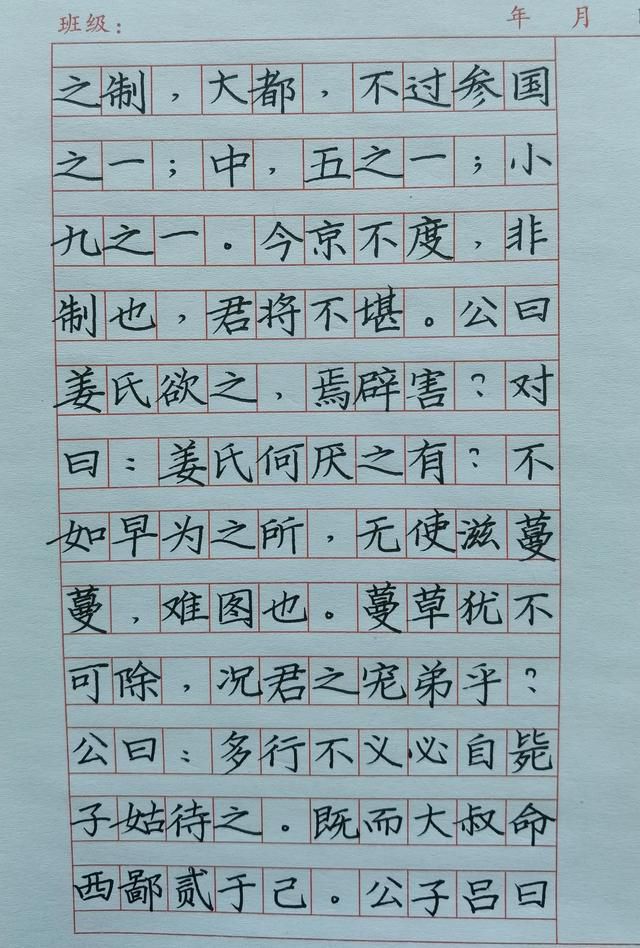 班级： 年 月
之制，大都，不过参国
之一；中，五之一；小
九之一。今京不度，非
制也，君将不堪。公曰
姜氏欲之，焉辟害？对
曰：姜氏何厌之有？不
如早为之所，无使滋蔓
蔓，难图也。蔓草犹不
可除，况君之宠弟乎？
公曰：多行不义必自毙
子姑待之。既而大叔命
西鄙贰于己。公子吕曰